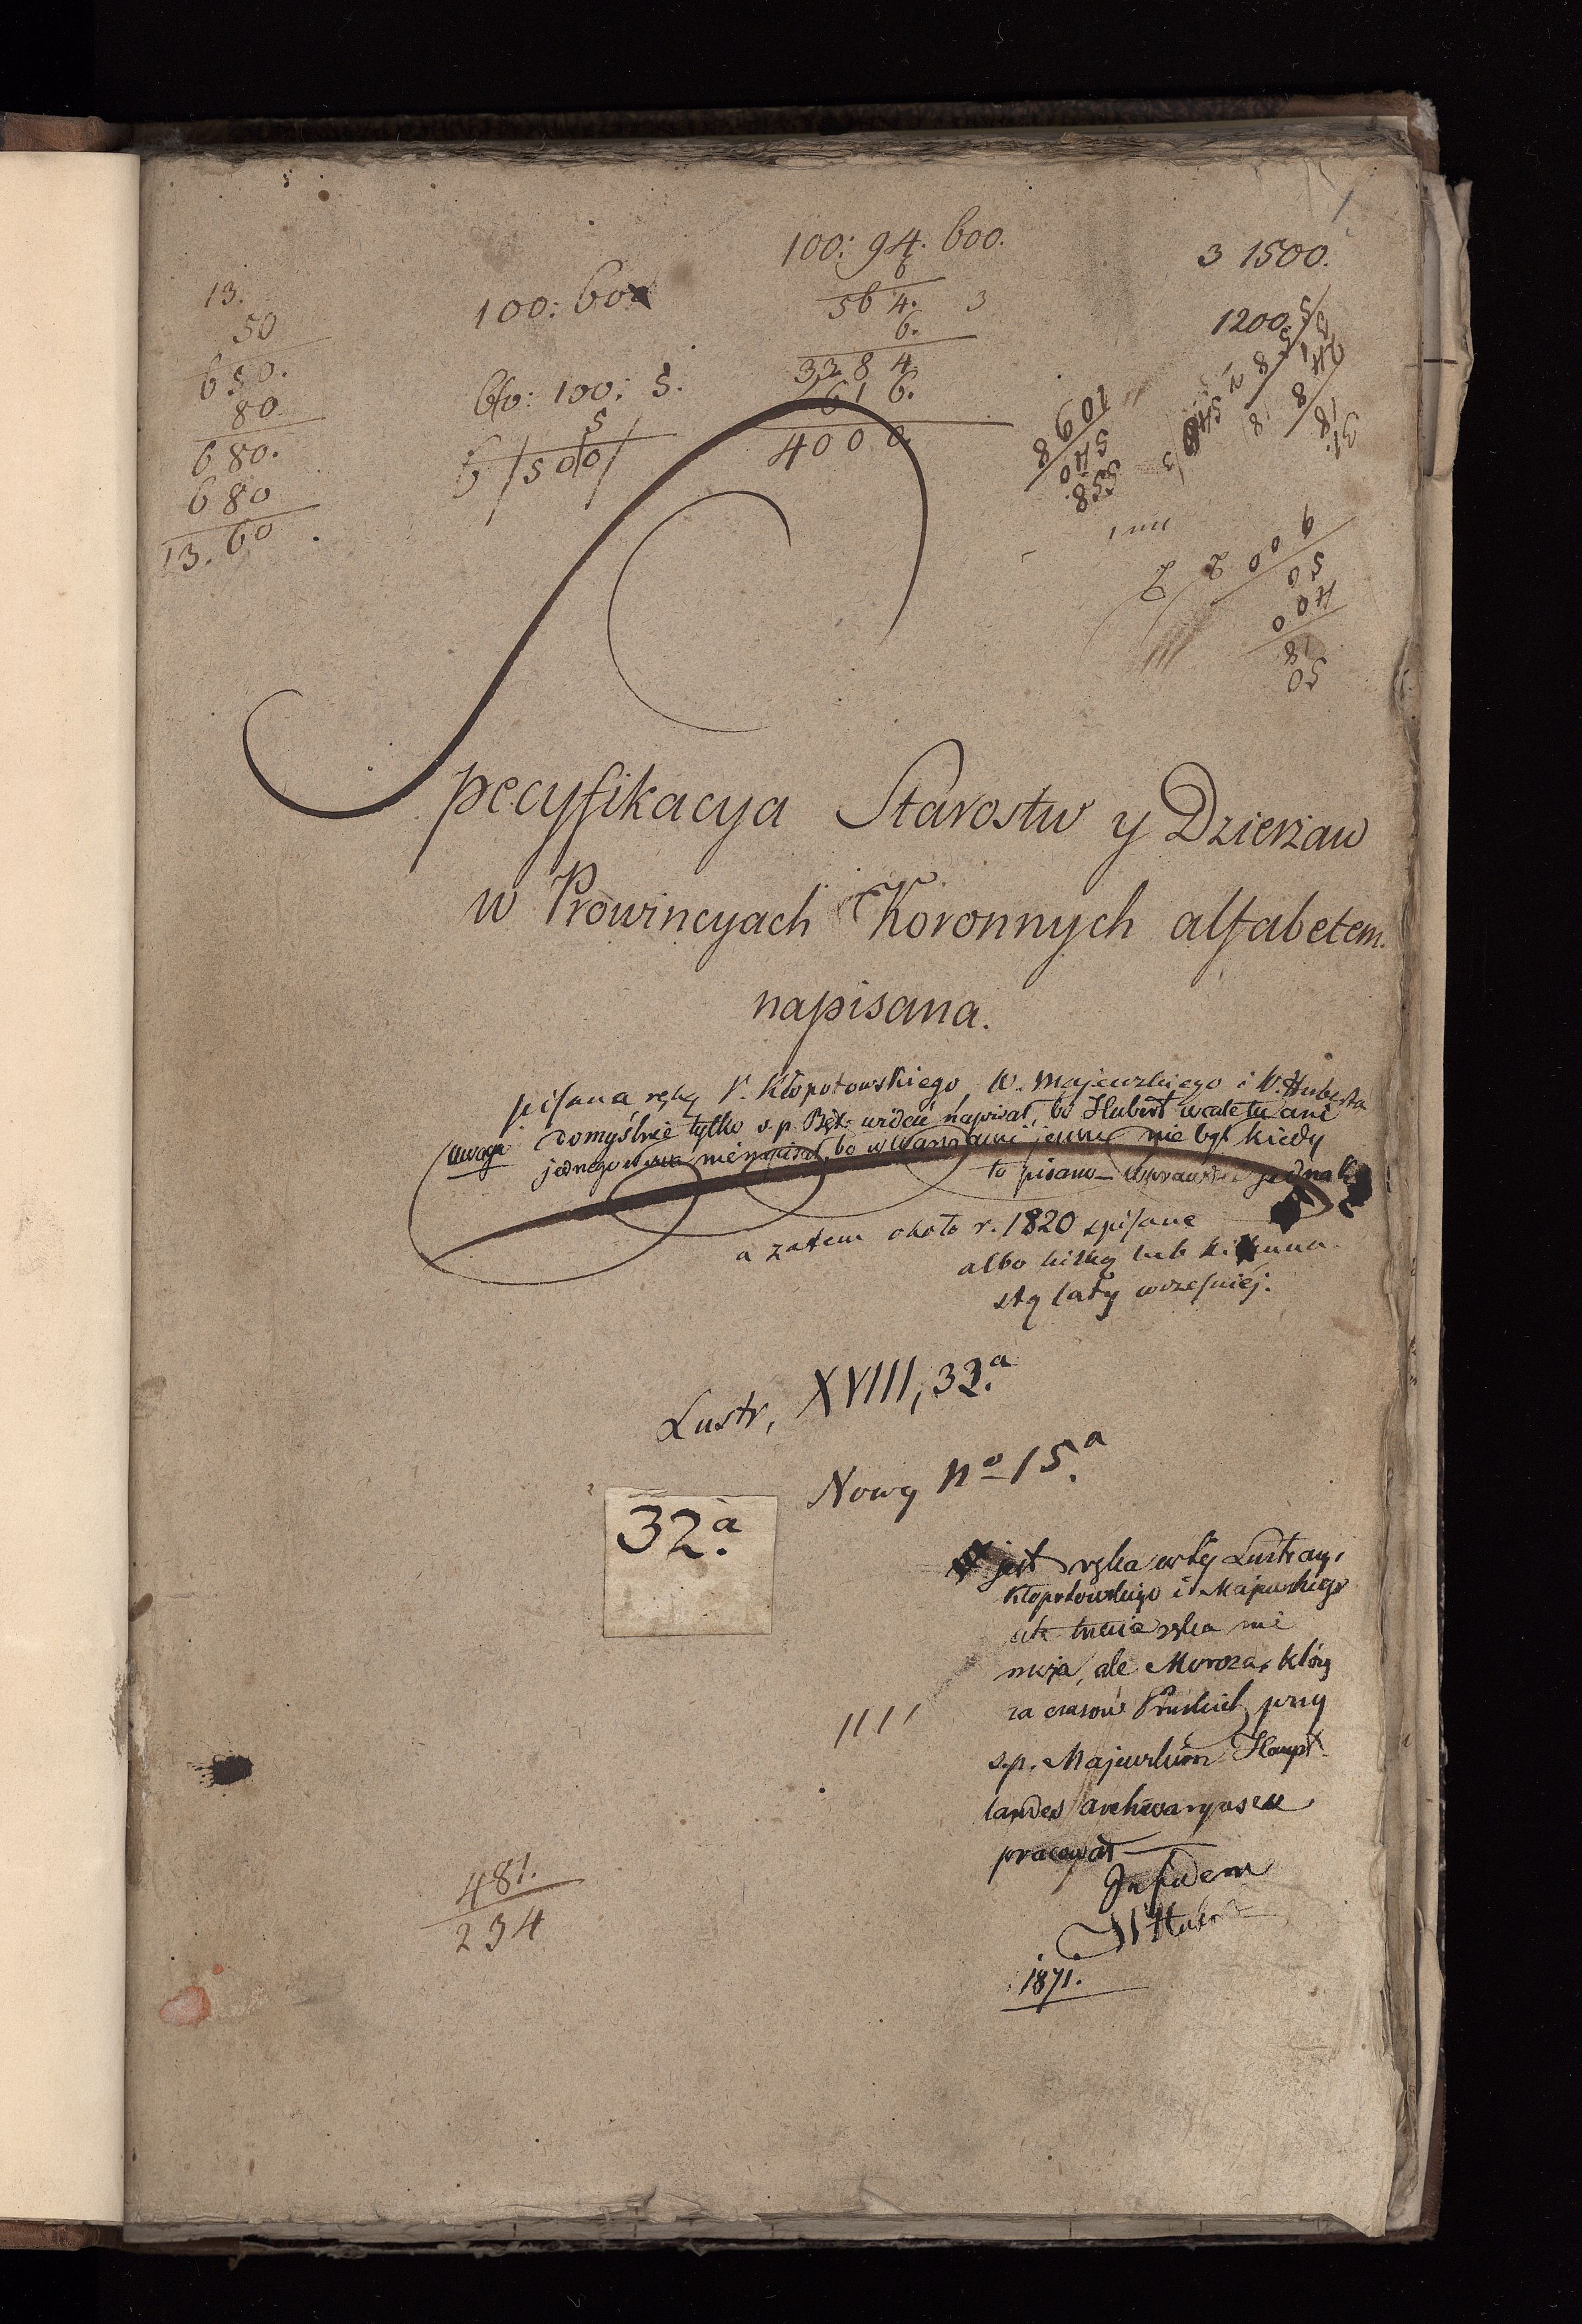 1
13.
50
650.
80
680.
680
13.60
100: 60
60: 100: 5.
5
6 / 500 /
100: 94. 600.
6
564. 3
6.
3384
616.
4000.
3 1500.
1200
1098
540
558
600
50
400
18
50
Specyfikacya Starostw y Dzierzaw
w Prowincyach Koronnych alfabetem
napisana.
pisana ręką P. Kłopotowskiego W. Majewskiego i W. Huberta
Uwaga domyślnie tylko s. p. napisał, bo Hubert wcale tu ani
jednego nie napisał, bo w Warszawie jeszcze nie był kiedy
to pisano – wprawdzie jednak
a zatem około r. 1820 spisane
albo kilką lub kilkuna
stą laty wcześniéj.
Lustr, XVIII, 32.a
Nowy no 15.a
32.a
jest ręka w téj Lustracyi
Kłopotowskiego i Majewskiego
ale trzecia ręka nie
moja, ale Moroza, który
za czasów Pruskich przy
s.p. Majewskim Haupt
landes archiwaryuszu
pracował
In fidem
WHubert
1871.
481.
234